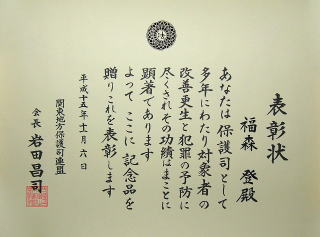 表彰状
福森 登殿
あなたは保護司として
多年にわたり対象者の
改善更生と犯罪の予防に
尽くされその功績はまことに
顕著であります
よってここに記念品を
贈りこれを表彰します
平成十五年十一月六日
関東地方保護司連盟
会長 岩田昌司